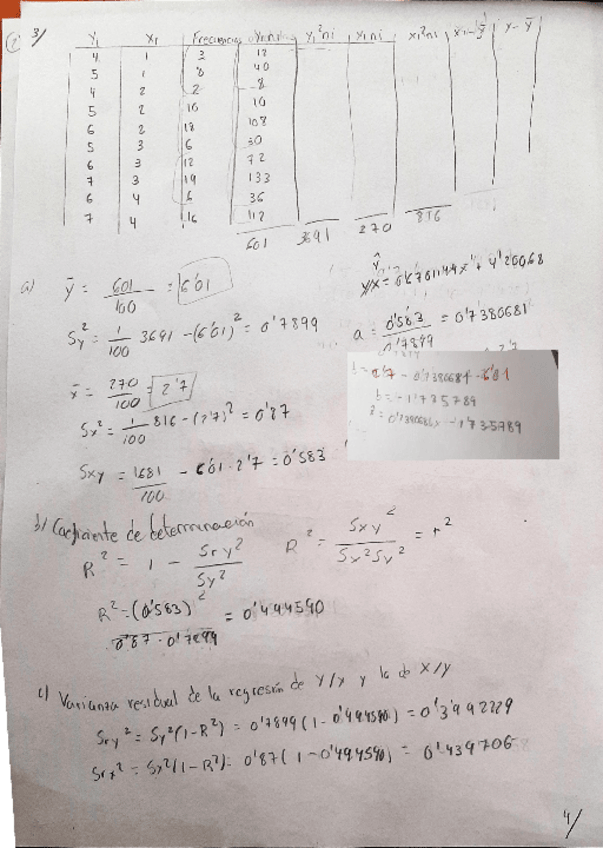 3/
Yi Xi Frecuencias Yi²ni Yi ni Xi²ni
4 1 3 12
5 1 8 40
4 2 2 8
5 2 10
6 2 18 108
5 3 6 30
6 3 12 72
7 3 19 133
6 4 6 36
7 4 16 112
601 3691 270 816
a) ȳ = 601/100 = 6'01
ŷ Y/X = 0'6701149x + 4'20068
Sy² = 1/100 3691 - (6'01)² = 0'7899
a = 0'583/0'7899 = 0'7380681
x̄ = 270/100 = 2'7
b = 2'7 - 0'7380681 · 6'01
b = -1'735789
Sx² = 1/100 816 - (2'7)² = 0'87
x̂ = 0'7380681x - 1'735789
Sxy = 1681/100 - 6'01 · 2'7 = 0'583
b) Coeficiente de determinación
R² = 1 - Sry²/Sy² R² = Sxy²/Sx²Sy² = r²
R² = (0'583)²/0'87 · 0'7899 = 0'494590
c) Varianza residual de la regresión de Y/X y la de X/Y
Sry² = Sy²(1-R²) = 0'7899(1-0'494590) = 0'3992229
Srx² = Sx²(1-R²) = 0'87(1-0'494590) = 0'4397068
4/